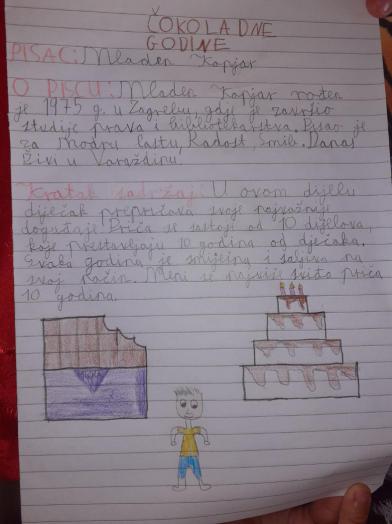 ČOKOLADNE
GODINE
PISAC: Mladen Kopjar
O PISCU: Mladen Kopjar rođen
je 1975 g. u Zagrebu, gdje je završio
studije prava i bibliotekarstva. Pisao je
za Modru lastu, Radost, Smib. Danas
živi u Varaždinu.
Kratak sadržaj: U ovom dijelu
dječak prepričava svoje najvažnije
događaje. Priča se sastoji od 10 dijelova,
koje prestavljaju 10 godina od dječaka.
Svaka godina je smiješna i šaljiva na
svoj način. Meni se najviše sviđa priča
10 godina.